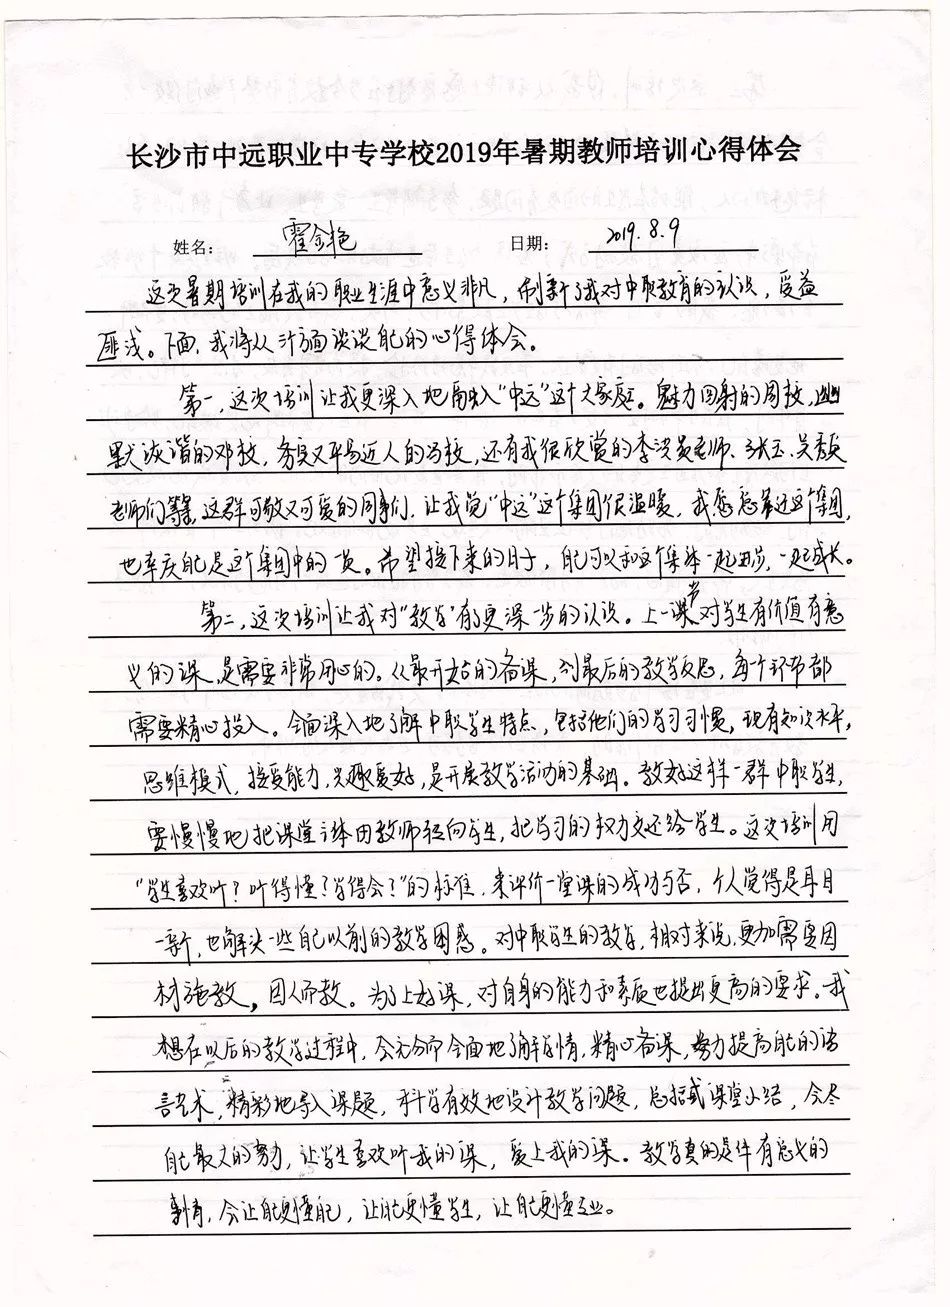 长沙市中远职业中专学校2019年暑期教师培训心得体会
姓名: 霍金艳 日期: 2019.8.9
这次暑期培训在我的职业生涯中意义非凡，刷新了我对中职教育的认识，受益
匪浅。下面，我将从方面谈谈自己的心得体会。
第一，这次培训让我更深入地融入“中远”这个大家庭。魅力四射的周校，幽
默诙谐的邓校，务实又平易近人的冯校，还有我很欣赏的李老师、张玉、吴
老师们等等，这群可敬又可爱的同事们，让我觉“中远”这个集团很温暖，我愈恋着这个集团，
也幸庆自己是这个集团中的一员。希望接下来的日子，自己可以和这个集体一起进步，一起成长。
第二，这次培训让我对“教学”有了更深一步的认识。上一堂课对学生有价值有意
义的课，是需要非常用心的。从最开始的备课，到最后的教学反思，每个环节都
需要精心投入。全面深入地了解中职学生特点，包括他们的学习习惯，现有知识水平，
思维模式，接受能力，兴趣爱好，是开展教学活动的基础。教好这样一群中职学生，
要慢慢地把课堂主体由教师转向学生，把学习的权力交还给学生。这次培训用
“学生喜欢听？听得懂？学得会？”的标准，来评价一堂课的成功与否，个人觉得是耳目
一新，也解决一些自己以前的教学困惑。对中职学生的教学，相对来说，更加需要因
材施教，因人而教。为了上好课，对自身的能力和素质也提出更高的要求。我
想在以后的教学过程中，会充分而全面地了解学情，精心备课，努力提高自己的语
言艺术，精彩地导入课题，科学有效地设计教学问题，总括式课堂小结，会尽
自己最大的努力，让学生喜欢听我的课，爱上我的课。教学真的是件有意义的
事情，会让自己更懂自己，让自己更懂学生，让自己更懂专业。